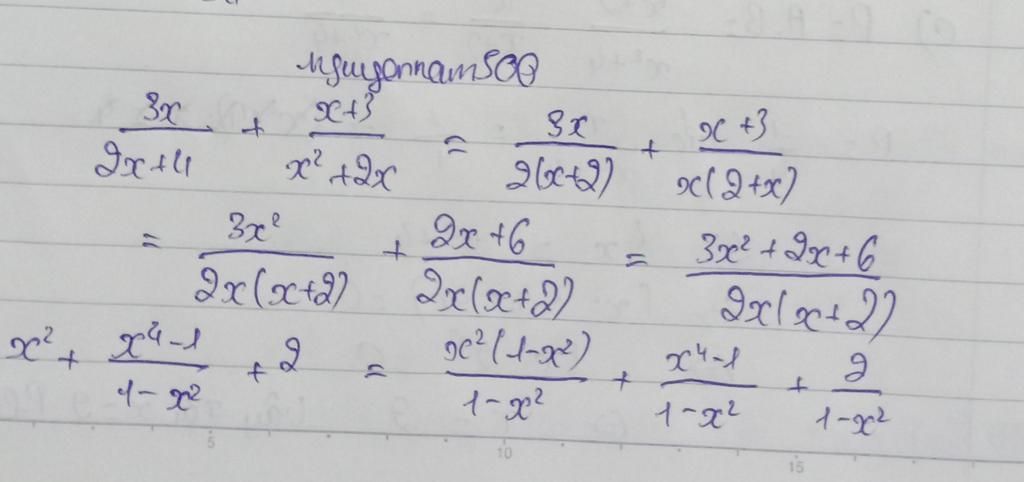 nguyennam508
3x/(2x+4) + (x+3)/(x²+2x) = 3x/(2(x+2)) + (x+3)/(x(2+x))
= 3x²/(2x(x+2)) + (2x+6)/(2x(x+2)) = (3x²+2x+6)/(2x(x+2))
x² + (x⁴-1)/(1-x²) + 2 = x²(1-x²)/(1-x²) + (x⁴-1)/(1-x²) + 2/(1-x²)
5 10 15